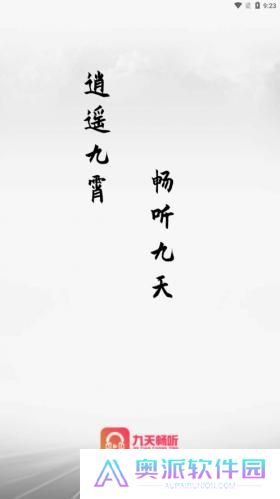 9:23
逍遥九霄
畅听九天
九天畅听
奥派软件园